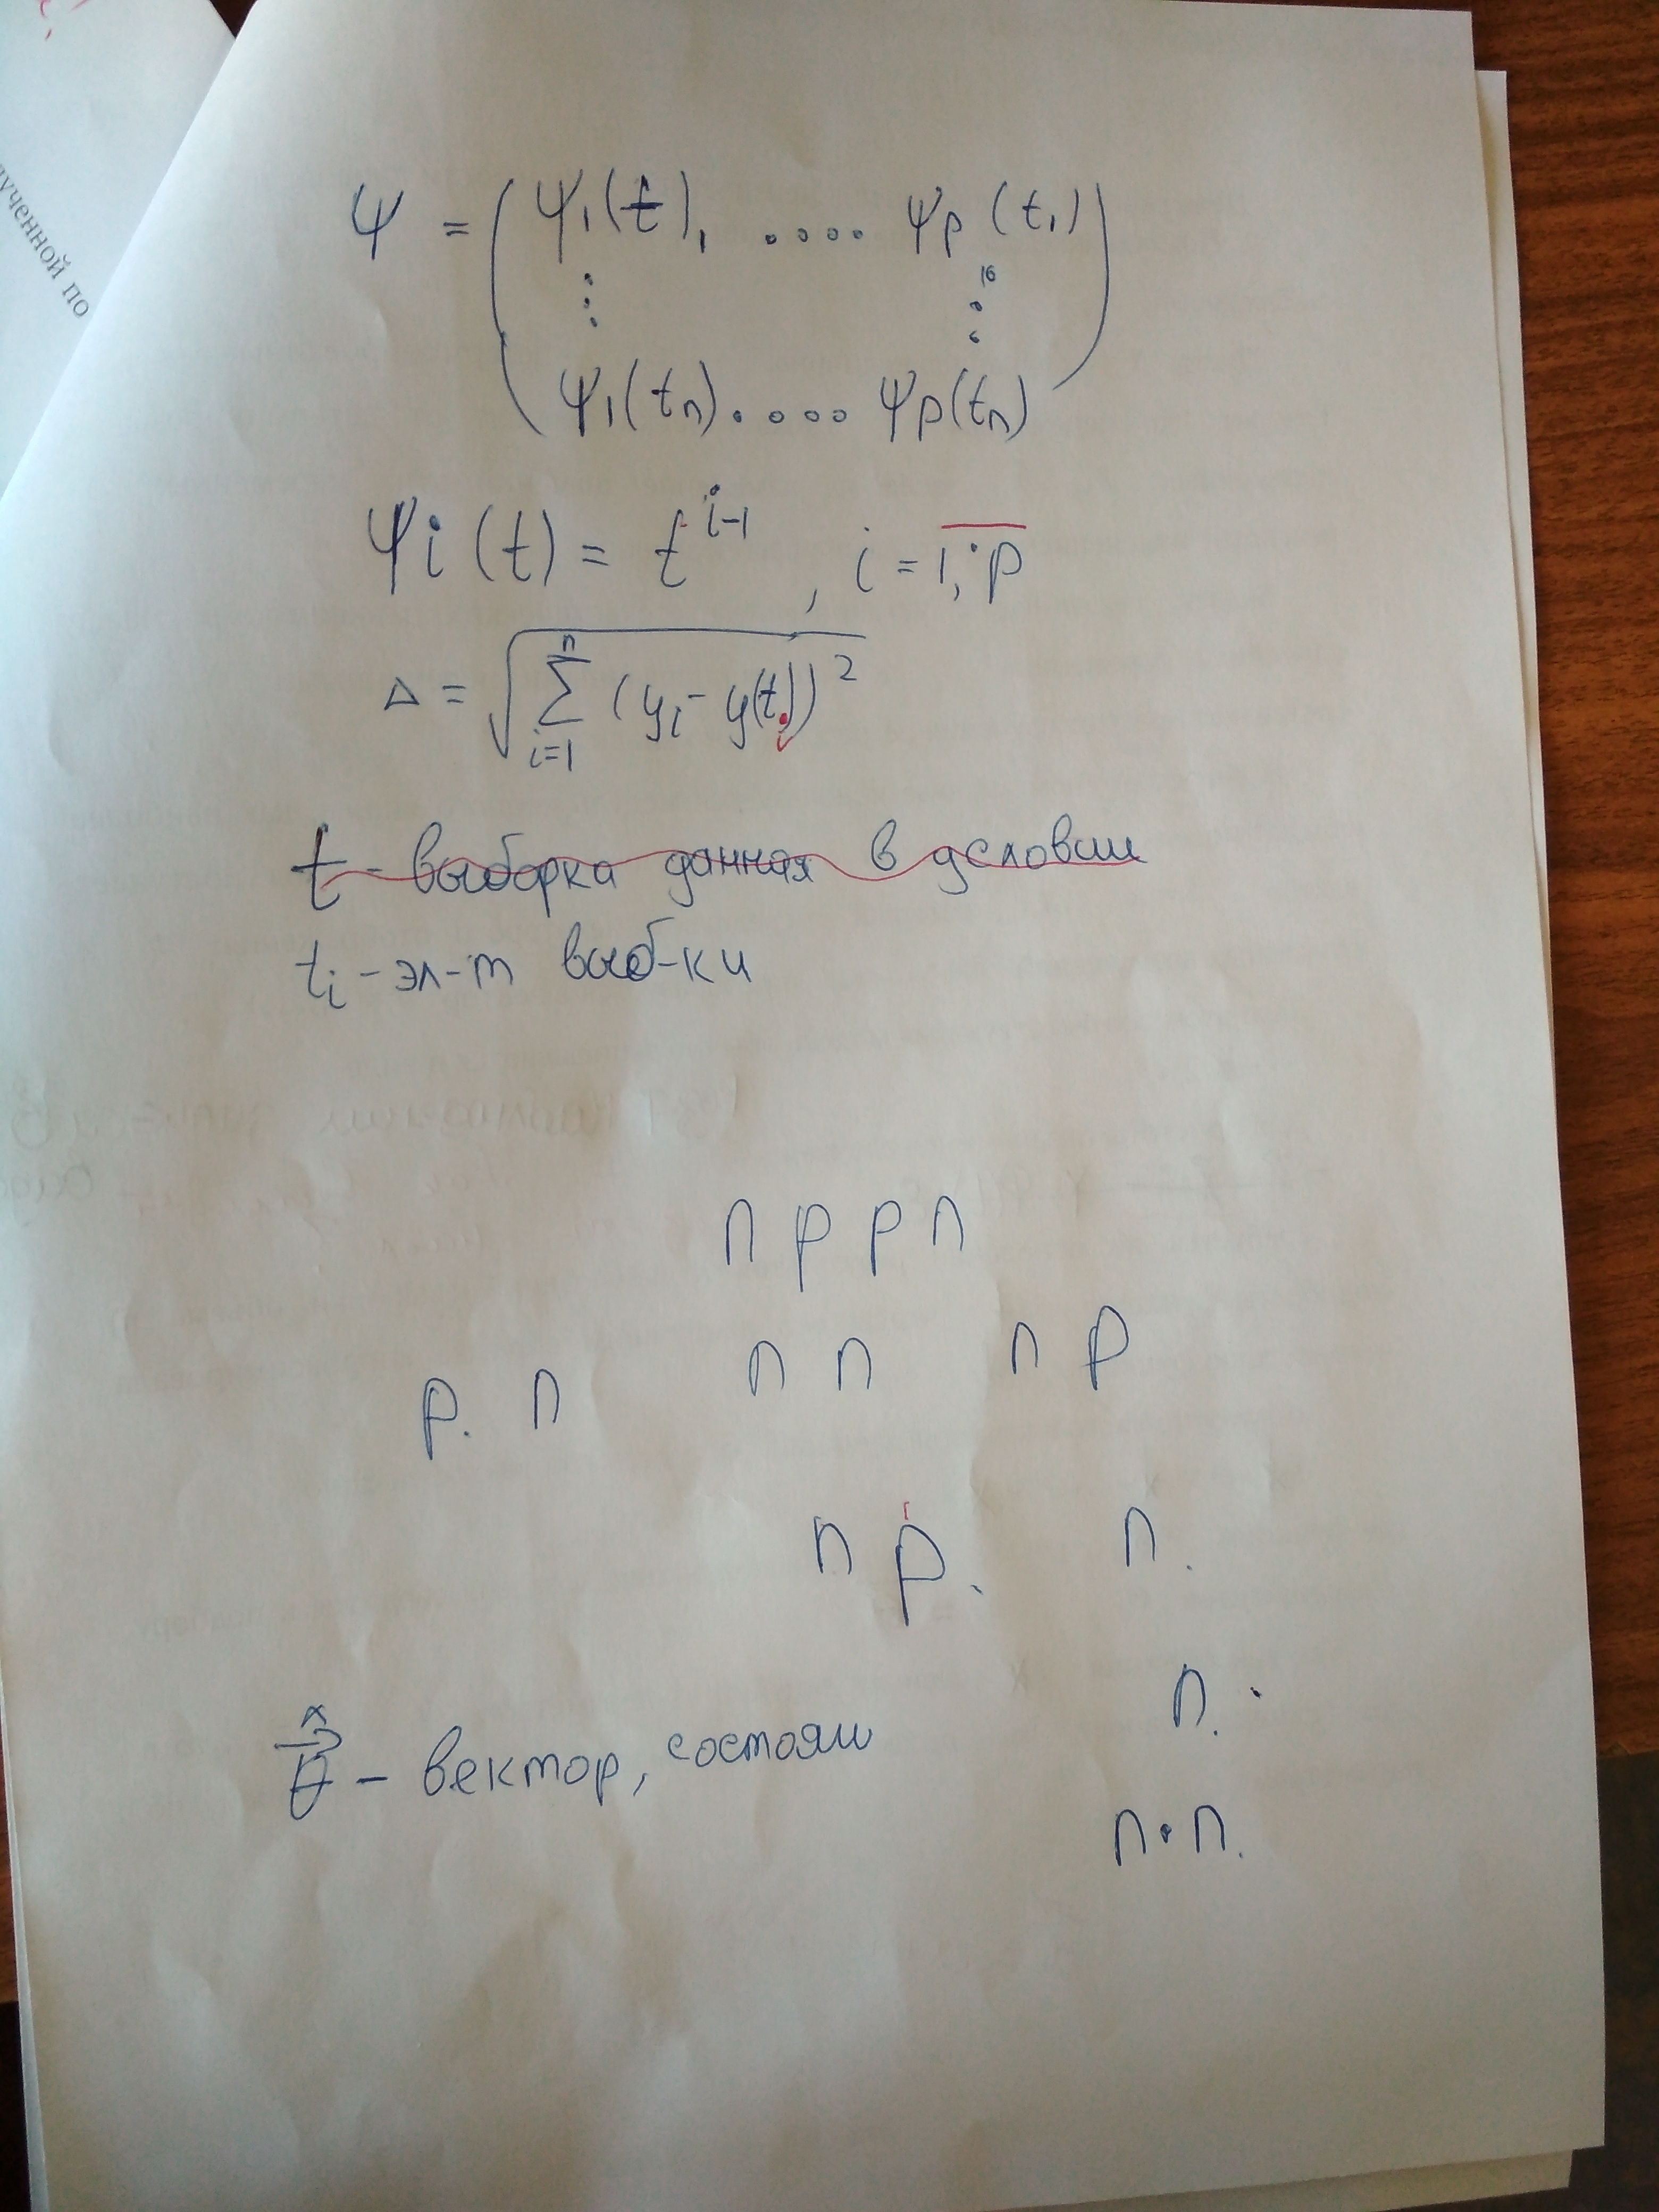 лученной по
Ψ = ( ψ₁(t), .... ψp (t₁)
⋮ 16 ⋮
ψ₁(tn) .... ψp(tn) )
ψi (t) = t^{i-1}, i = \overline{1, p}
Δ = √(∑_{i=1}^{n} (yi - y(ti))²)
t - выборка данная в условии
ti - эл-т выб-ки
n p p n
n n n p
p. n
n p. n.
n.
θ̂ - вектор, состоящ
n · n.